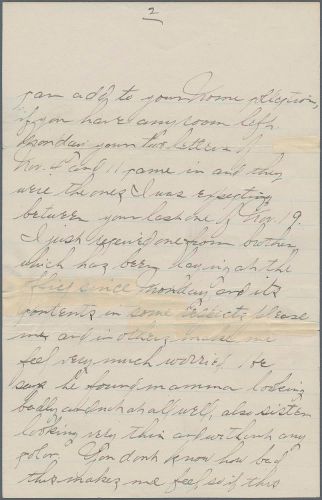 2
can add to your home collection,
if you have any room left.
Monday your two letters of
Nov. and 11 came in and they
were the ones I was expecting
between your last one of Nov. 19.
I just received one from brother
which has been laying at the
Hotel since Monday and its
contents in some respects please
me and in others make me
feel very much worried, he
says he found mamma looking
badly and not at all well, also sister
looking very thin and without any
color. You dont know how bad
this makes me feel so if this